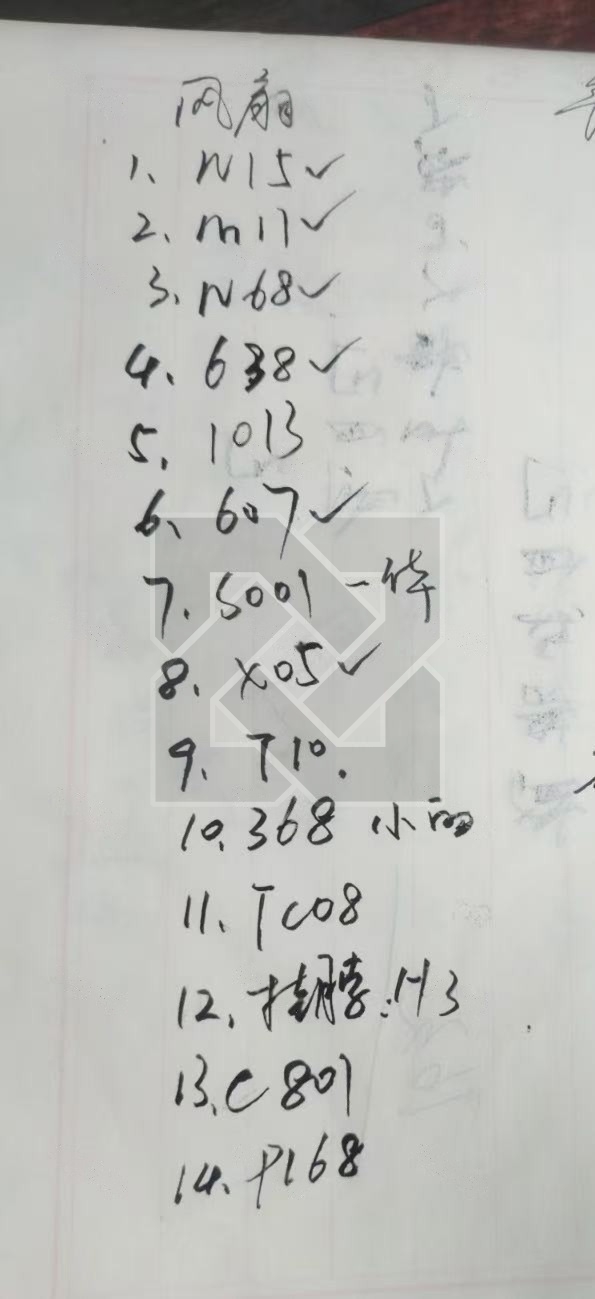 风扇
1、N15✓
2、m11✓
3、N68✓
4、638✓
5、1013
6、607✓
7、S001 一华
8、X05✓
9、T10.
10、368 小丽
11、TC08
12、挂脖:H3
13、C801
14、P168